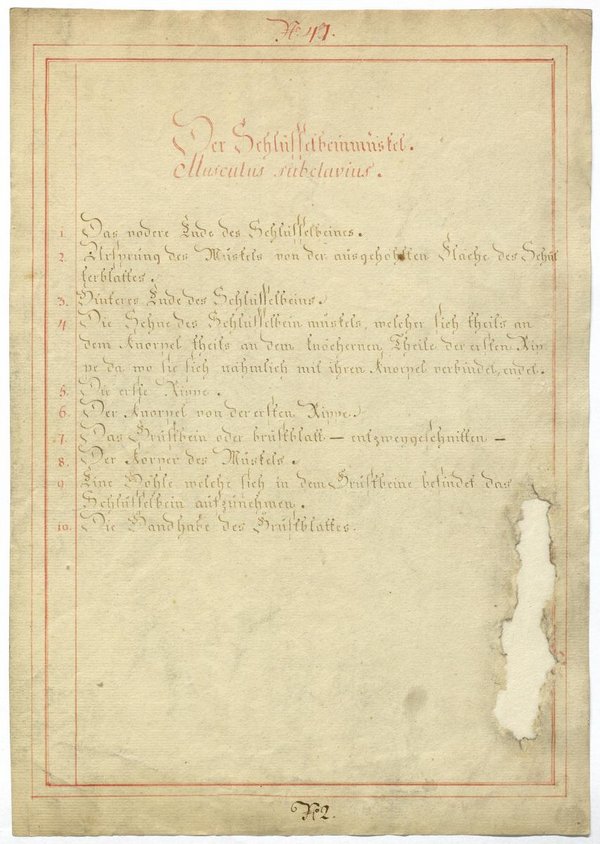 N. 41.
Der Schlüsselbeinmüskel.
Musculus subclavius.
1. Das vodere Ende des Schlüsselbeines.
2. Ursprung des Müskels von der ausgehohlten Flache des Schul
terblattes.
3. Hinteres Ende des Schlüsselbeins.
4. Die Sehne des Schlüsselbein müskels, welcher sich theils an
dem Knorpel theils an dem knöchernen Theile der ersten Rip
pe da wo sie sich nähmlich mit ihren Knorpel verbindet, endet.
5. Die erste Rippe.
6. Der Knorpel von der ersten Rippe.
7. Das Brüstbein oder brüstblatt — entzweygeschnitten —
8. Der Korper des Müskels.
9. Eine Höhle welche sich in dem Brüstbeine befindet das
Schlüsselbein aufzünehmen.
10. Die Handhabe des Brüstblattes.
N2.